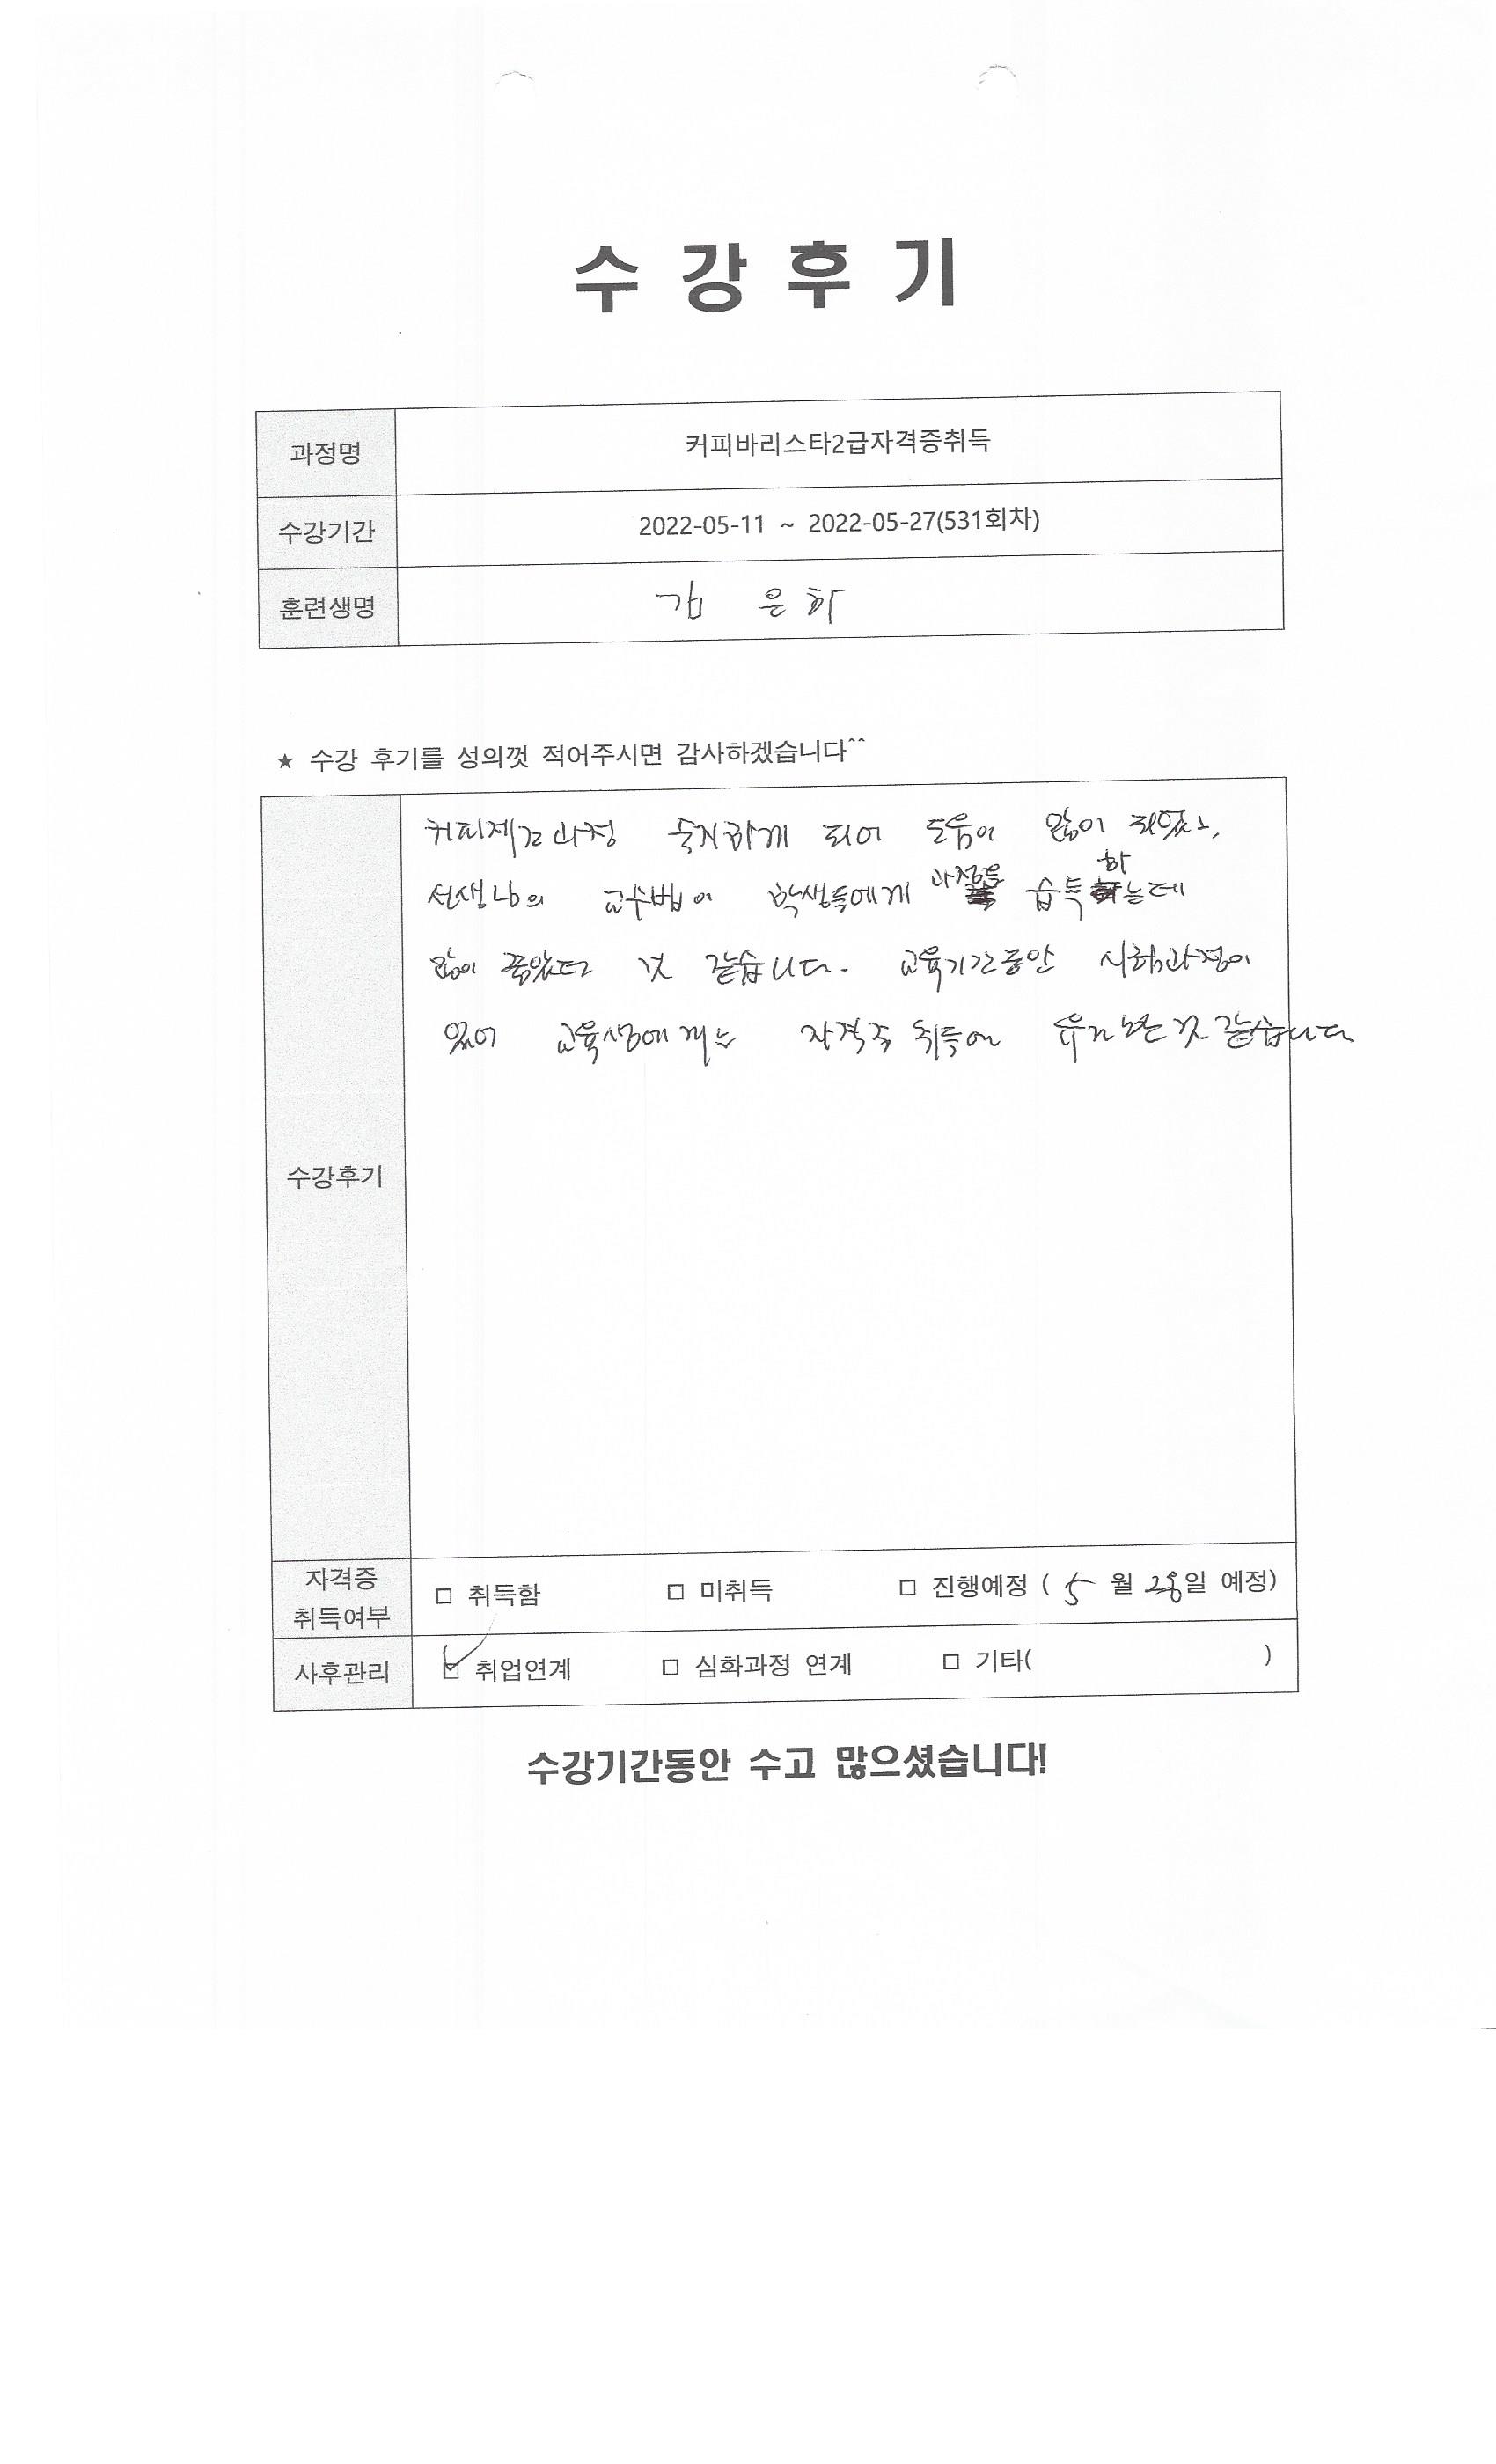 수 강 후 기
과정명 커피바리스타2급자격증취득
수강기간 2022-05-11 ~ 2022-05-27(531회차)
훈련생명 김 은하
★ 수강 후기를 성의껏 적어주시면 감사하겠습니다^^
커피제조과정 숙지하게 되어 도움이 많이 되었고,
선생님의 교수법이 학생들에게 과정을 습득하는데
많이 좋았던 것 같습니다. 교육기간동안 시험과정이
있어 교육생에게는 자격증 취득에 것 같습니다
수강후기
자격증 취득여부 □ 취득함 □ 미취득 □ 진행예정 ( 5 월 28일 예정)
사후관리 □ 취업연계 □ 심화과정 연계 □ 기타( )
수강기간동안 수고 많으셨습니다!